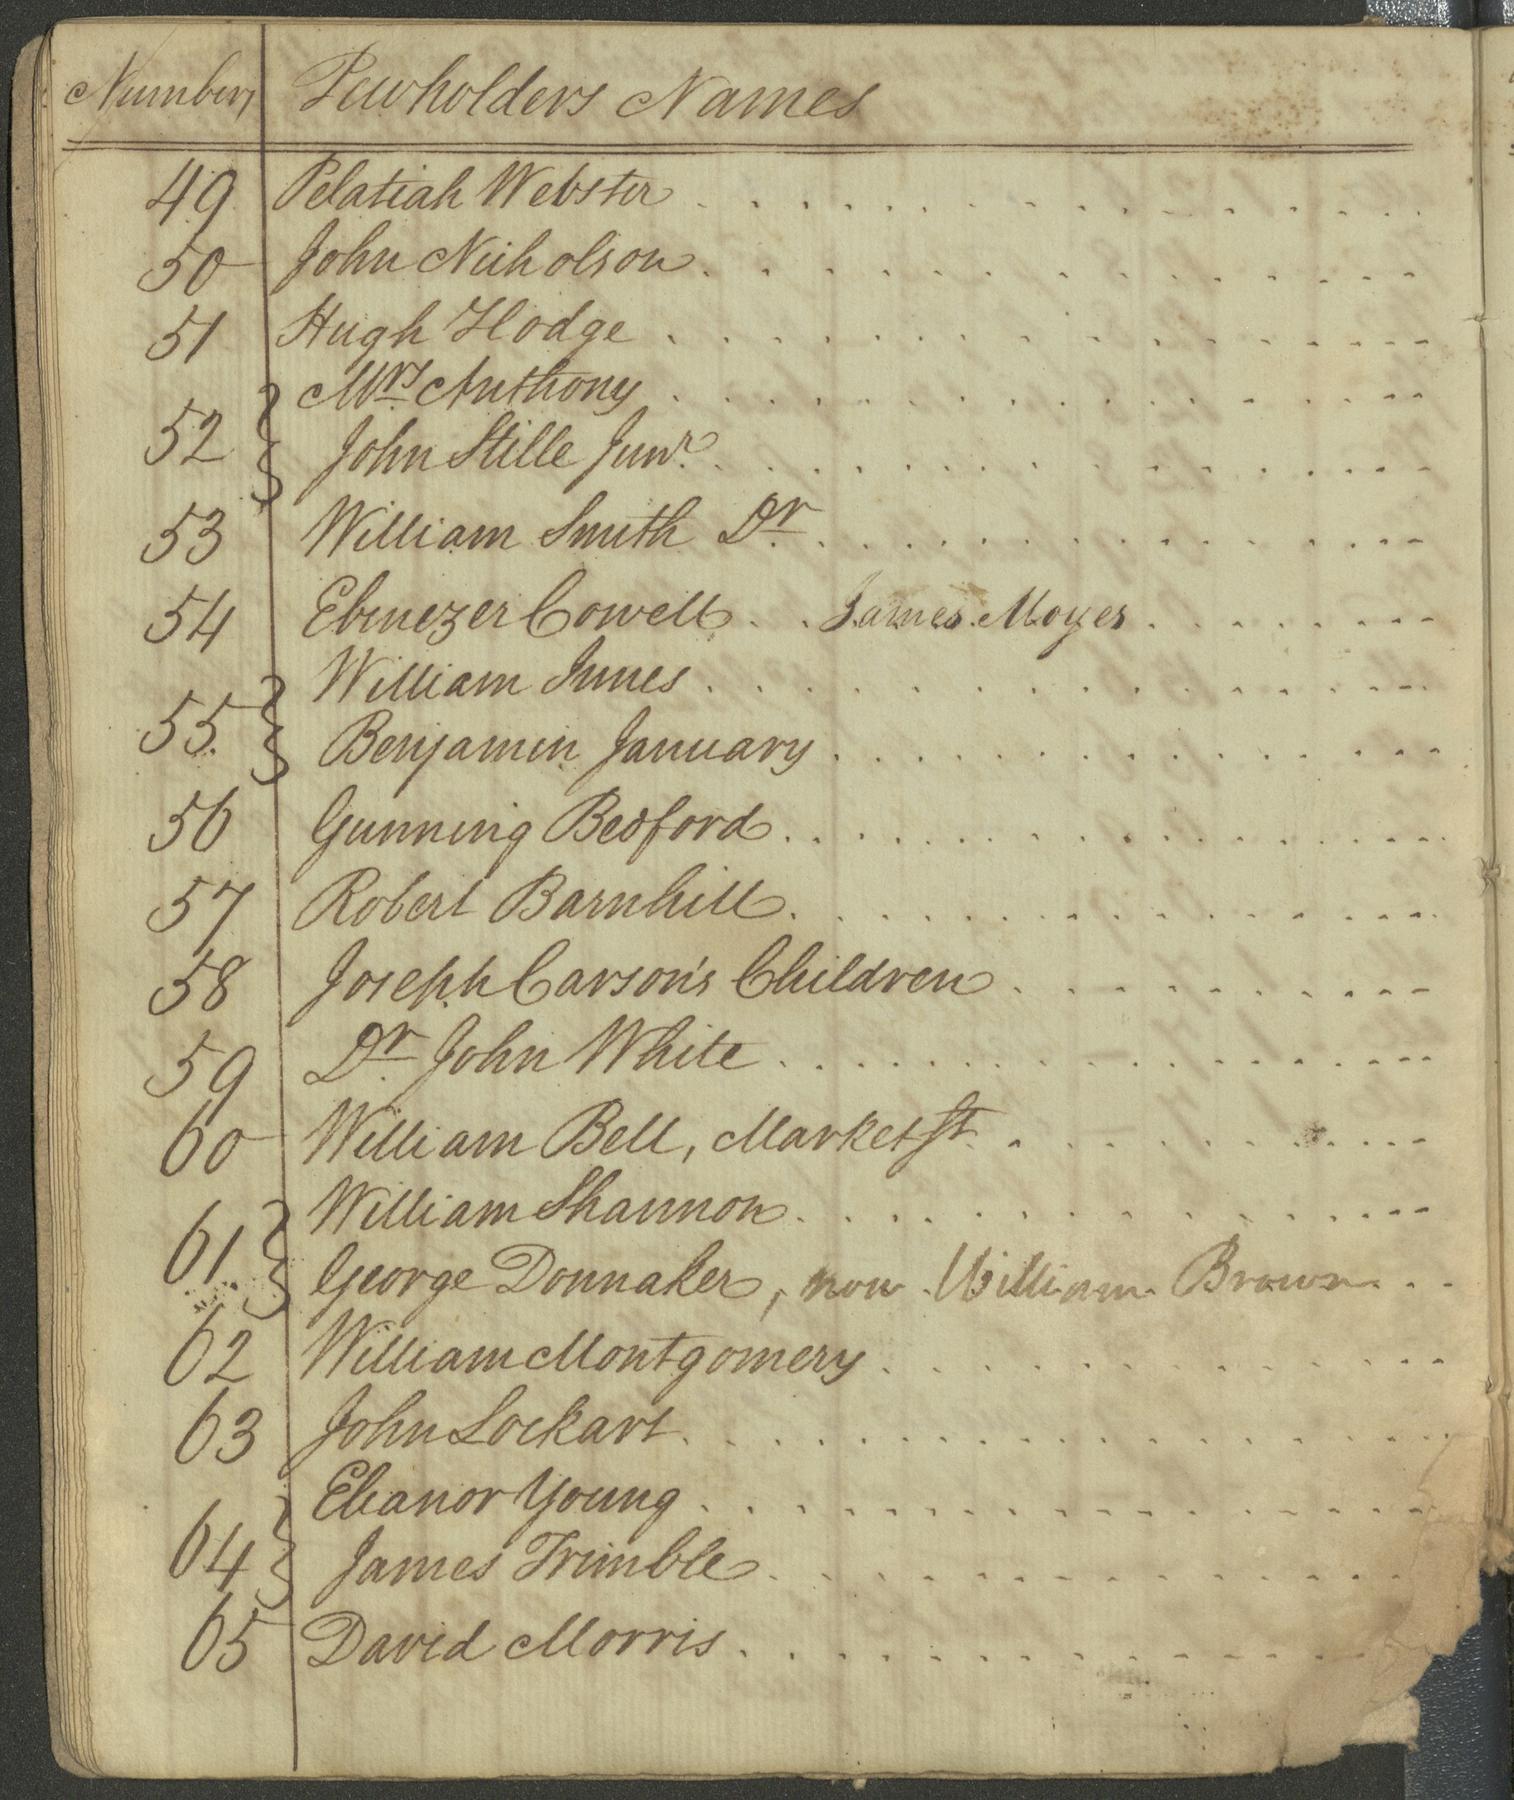 Numbers Pewholders Names
49 Pelatiah Webster
50 John Nicholson
51 Hugh Hodge
Mrs Anthony
52
John Stille Junr.
53 William Smith Dr.
54 Ebenezer Cowell James Moyes
William Innes
55.
Benjamin January
56 Gunning Bedford
57 Robert Barnhill
58 Joseph Carson's Children
59 Dr. John White
60 William Bell, Market St
William Shannon
61
George Donnaker, now William Brown
62 William Montgomery
63 John Lockart
Eleanor Young
64
James Trimble
65 David Morris